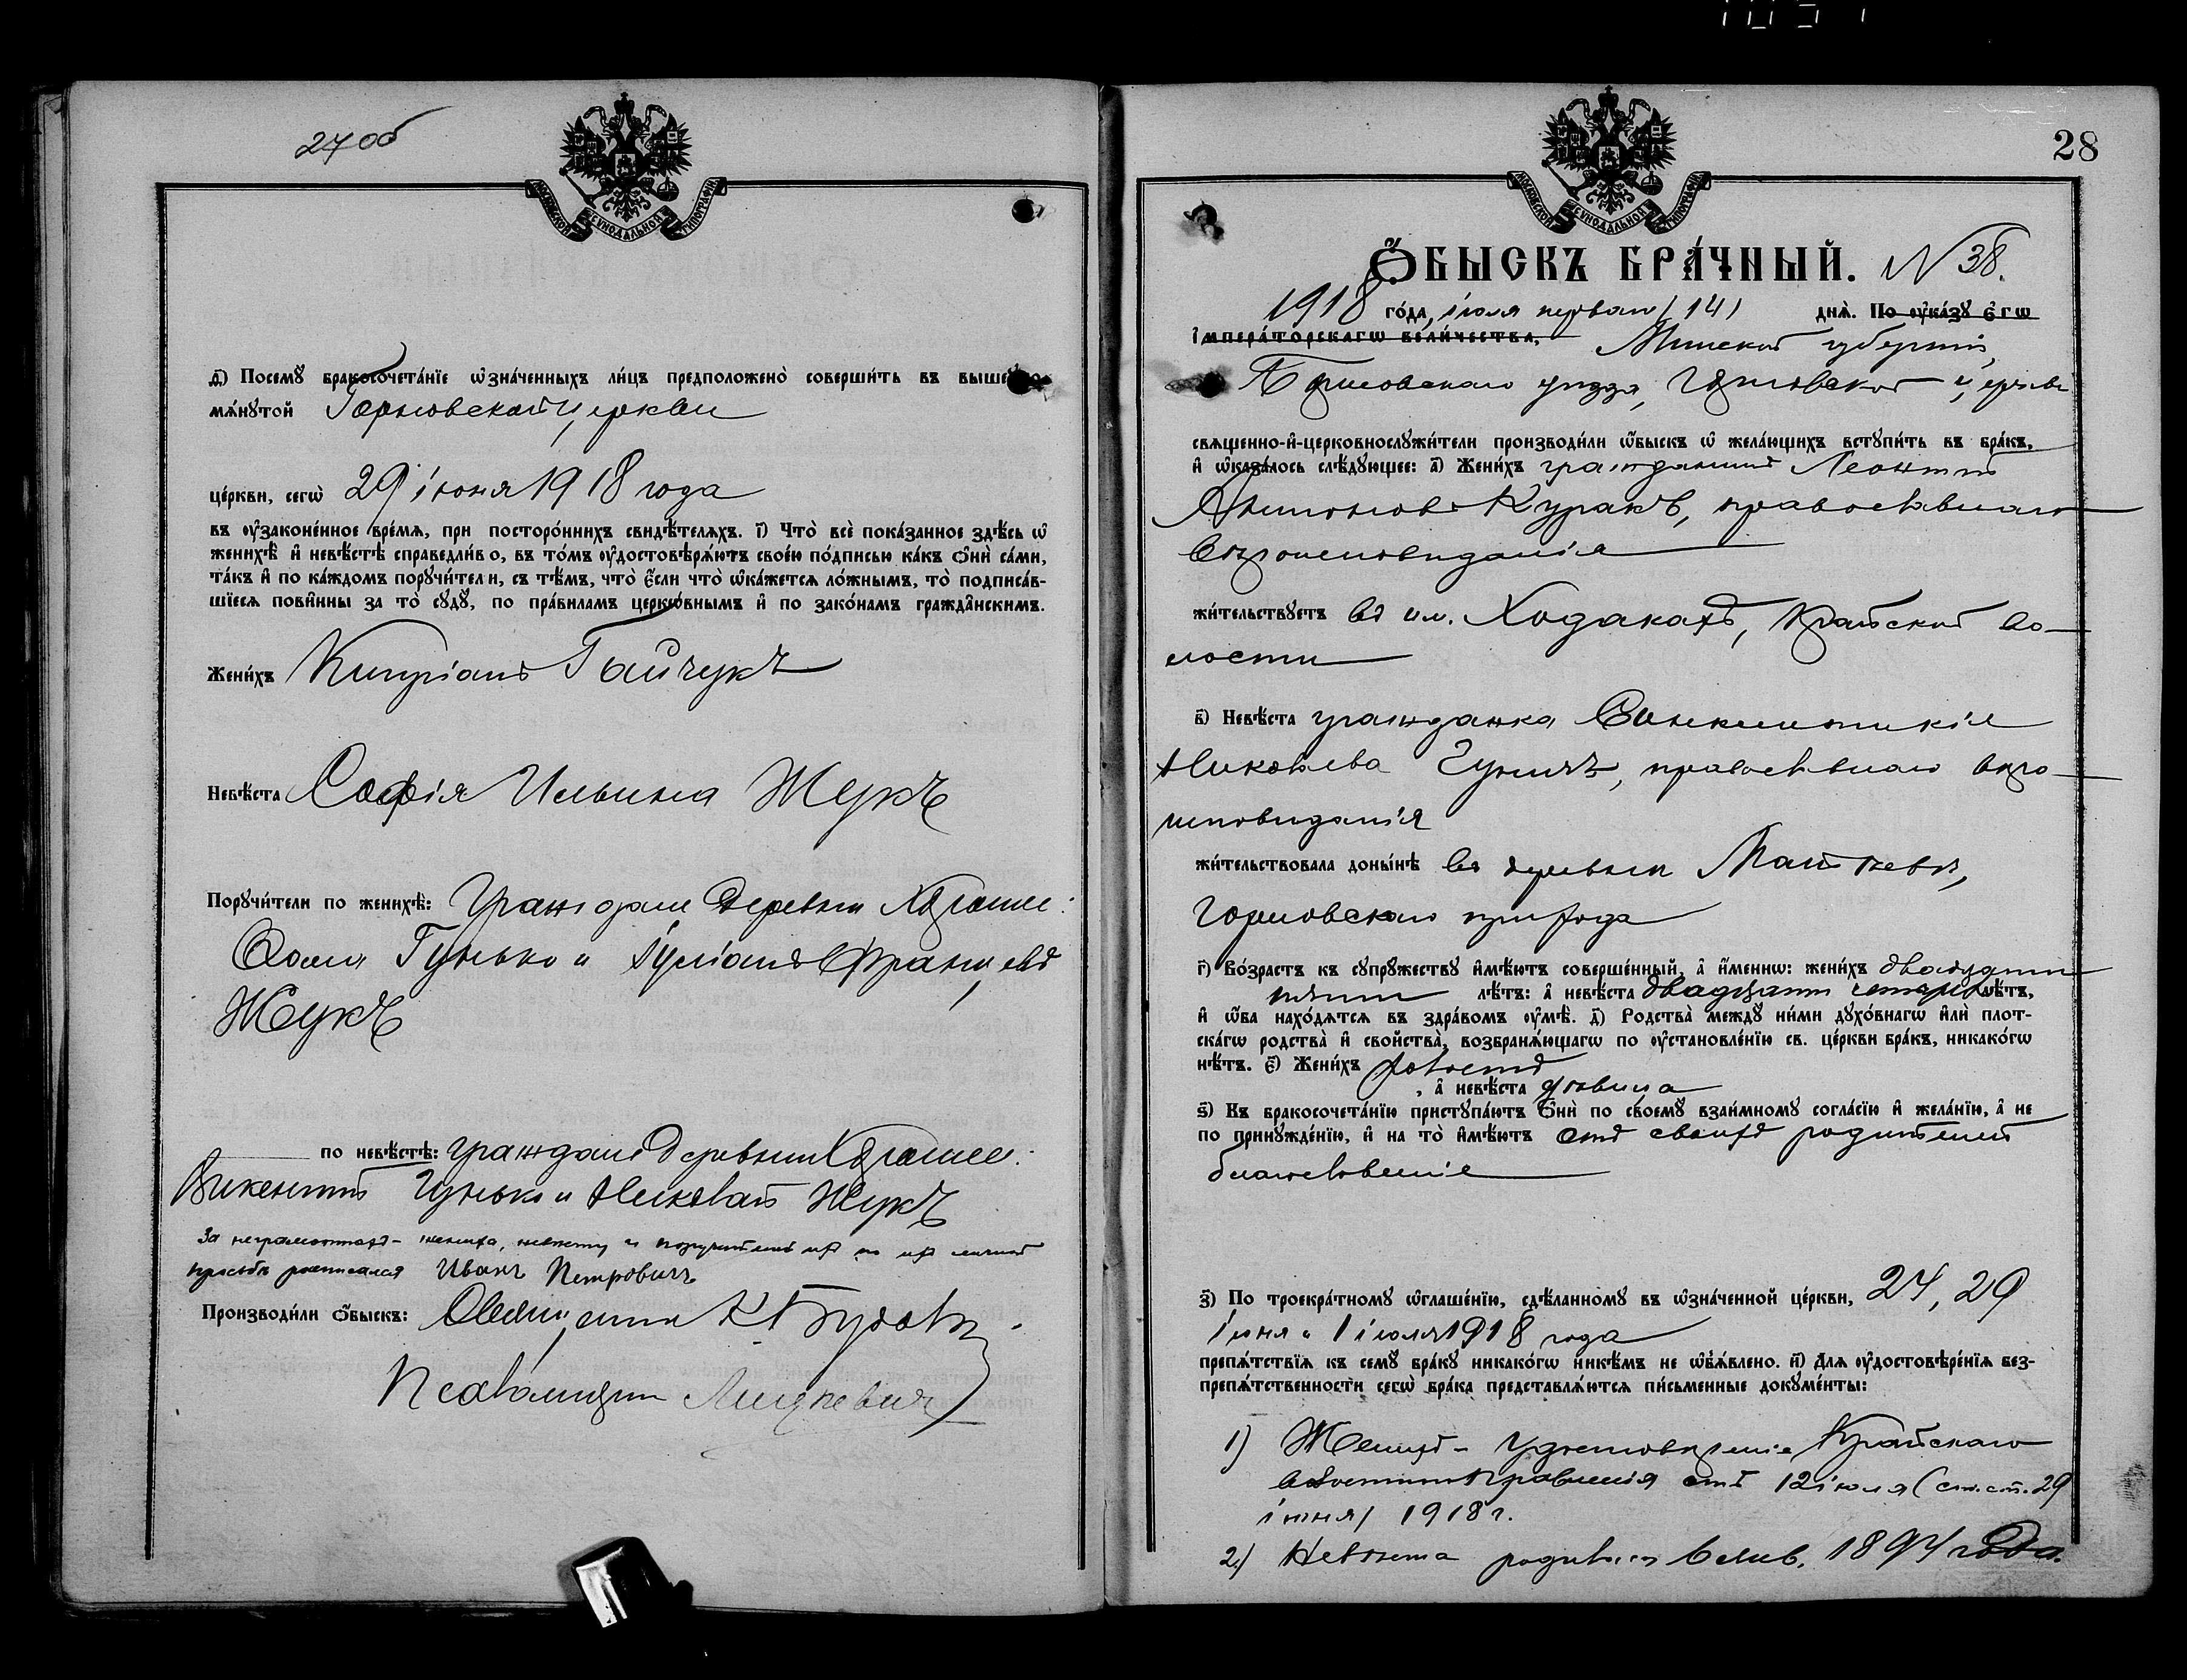 27 об
МОСКОВСКОЙ СѴНОДАЛЬНОЙ ТИПОГРАФІИ
д҃) Посемꙋ̀ бракосочета́нїе ѡ҆зна́ченныхъ ли́цъ предположено̀ соверши́ть въ вышеꙋпо-
мѧ́нꙋтой Горновской церкви
це́ркви, сегѡ̀ 29 іюня 1918 года
въ ᲂу҆законе́нное вре́мѧ, при посторо́ннихъ свидѣ́телѧхъ. і҃) Что̀ всѐ пока́занное здѣ́сь ѡ҆
женихѣ̀ и҆ невѣ́стѣ справедли́во, въ то́мъ ᲂу҆достовѣрѧ́ютъ свое́ю по́дписью ка́къ ѻ҆нѝ са́ми,
та́къ и҆ по ка́ждомъ порꙋчи́тели, съ тѣ́мъ, что̀ є҆́сли что̀ ѡ҆ка́жетсѧ ло́жнымъ, то̀ подписа́в-
шїесѧ пови́нны за то̀ сꙋдꙋ̀, по пра́виламъ церко́внымъ и҆ по зако́намъ гражда́нскимъ.
Жени́хъ Кипріанъ Гайчукъ
Невѣ́ста Софія Ильина Жукъ
Порꙋчи́тели по женихѣ̀: Граждане деревни
Ѳома Гунько и Юліанъ Францевъ
Жукъ
по невѣ́стѣ: граждане деревни
Викентій Гунько и Николай Жукъ
За неграмотныхъ жениха, невѣсту и поручителей ихъ по ихъ личной
просьбѣ росписался Иванъ Петровичъ
Производи́ли ѻ҆́быскъ: Священникъ К.
Псаломщикъ
28
МОСКОВСКОЙ СѴНОДАЛЬНОЙ ТИПОГРАФІИ
Ѻ҆́БЫСКЪ БРА́ЧНЫЙ. N 38.
1918 го́да, іюля перваго (14) днѧ̀. По ᲂу҆ка́зꙋ Є҆гѡ̀
І҆мпера́торскагѡ вели́чества, Минской губерніи,
Борисовскаго уѣзда, Горновской церкви
свѧщенно-и҆-церковнослꙋжи́тели производи́ли ѻ҆́быскъ ѡ҆ жела́ющихъ встꙋпи́ть въ бра́къ,
и҆ ѡ҆каза́лось слѣ́дꙋющее: а҃) Жени́хъ гражданинъ Леонтій
Антоновъ Куракъ, православнаго
вѣроисповѣданія
жи́тельствꙋетъ въ им. Ходакахъ, Крайской во-
лости
в҃) Невѣ́ста гражданка Синклитикія
Николаева, православнаго вѣро-
исповѣданія
жи́тельствовала доны́нѣ въ деревни,
Горновскаго прихода
г҃) Во́зрастъ къ сꙋпрꙋ́жествꙋ и҆мѣ́ютъ соверше́нный, а҆ и҆́меннѡ: жени́хъ двадцати
пяти лѣ́тъ: а҆ невѣ́ста двадцати четырехъ лѣ́тъ,
и҆ ѻ҆́ба нахо́дѧтсѧ въ здра́вомъ ᲂу҆мѣ̀. д҃) Родства̀ междꙋ̀ ни́ми дꙋхо́внагѡ и҆лѝ плот-
ска́гѡ родства̀ и҆ сво́йства̀, возбранѧ́ющагѡ по ᲂу҆становле́нїю св. це́ркви бра́къ, никако́гѡ
нѣ́тъ. є҃) Жени́хъ холостъ
, а҆ невѣ́ста дѣвица
ѕ҃) Къ бракосочета́нїю пристꙋпа́ютъ ѻ҆нѝ по своемꙋ̀ взаи́мномꙋ согла́сїю и҆ жела́нїю, а҆ не
по принꙋжде́нїю, и҆ на то̀ и҆мѣ́ютъ отъ своихъ родителей
благословеніе
з҃) По троекра́тномꙋ ѡ҆глаше́нїю, сдѣ́ланномꙋ въ ѡ҆зна́ченной це́ркви, 24, 29
іюня и 1 іюля 1918 года
препѧ́тствїѧ къ семꙋ̀ бра́кꙋ никако́гѡ никѣ́мъ не ѡ҆б̾ѧ́влено. и҃) Длѧ ᲂу҆достовѣре́нїѧ без-
препѧ́тственности сегѡ̀ бра́ка представлѧ́ютсѧ пи́сьменные докꙋме́нты:
1) Женихъ - удостовѣреніе Крайскаго
Волостн. Правленія отъ 12 іюля (ст. ст. 29
іюня) 1918 г.
2) Невѣста родилась 1894 года.